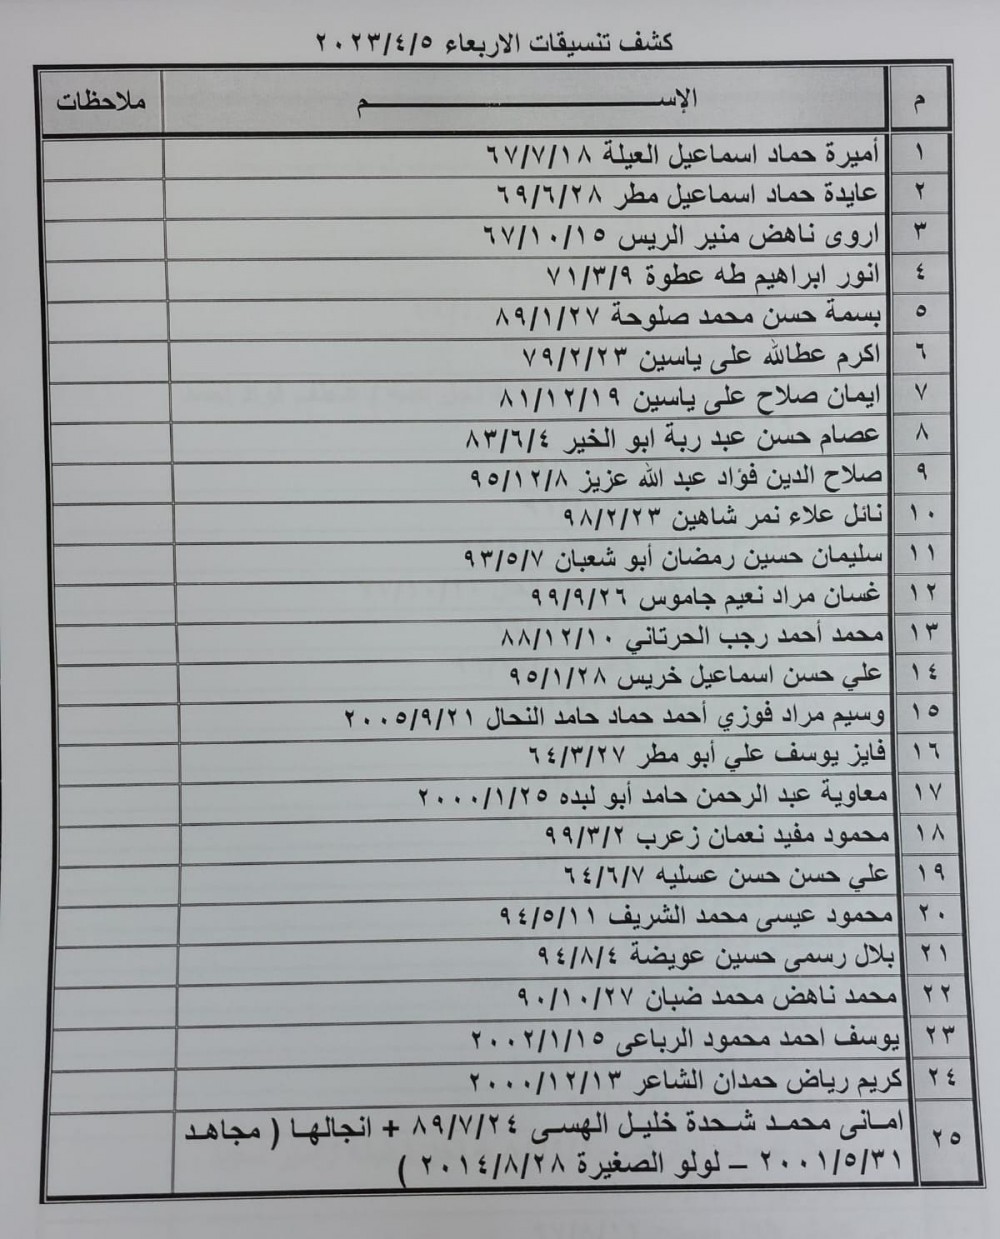 كشف تنسيقات الاربعاء ٢٠٢٣/٤/٥
م الإســـــــم ملاحظات
١ أميرة حماد اسماعيل العيلة ٦٧/٧/١٨
٢ عايدة حماد اسماعيل مطر ٦٩/٦/٢٨
٣ اروى ناهض منير الريس ٦٧/١٠/١٥
٤ انور ابراهيم طه عطوة ٧١/٣/٩
٥ بسمة حسن محمد صلوحة ٨٩/١/٢٧
٦ اكرم عطالله على ياسين ٧٩/٢/٢٣
٧ ايمان صلاح على ياسين ٨١/١٢/١٩
٨ عصام حسن عبد ربة ابو الخير ٨٣/٦/٤
٩ صلاح الدين فؤاد عبد الله عزيز ٩٥/١٢/٨
١٠ نائل علاء نمر شاهين ٩٨/٢/٢٣
١١ سليمان حسين رمضان أبو شعبان ٩٣/٥/٧
١٢ غسان مراد نعيم جاموس ٩٩/٩/٢٦
١٣ محمد أحمد رجب الحرتاني ٨٨/١٢/١٠
١٤ علي حسن اسماعيل خريس ٩٥/١/٢٨
١٥ وسيم مراد فوزي أحمد حماد حامد النحال ٢٠٠٥/٩/٢١
١٦ فايز يوسف علي أبو مطر ٦٤/٣/٢٧
١٧ معاوية عبد الرحمن حامد أبو لبده ٢٠٠٠/١/٢٥
١٨ محمود مفيد نعمان زعرب ٩٩/٣/٢
١٩ علي حسن حسن عسليه ٦٤/٦/٧
٢٠ محمود عيسى محمد الشريف ٩٤/٥/١١
٢١ بلال رسمى حسين عويضة ٩٤/٨/٤
٢٢ محمد ناهض محمد ضبان ٩٠/١٠/٢٧
٢٣ يوسف احمد محمود الرباعى ٢٠٠٢/١/١٥
٢٤ كريم رياض حمدان الشاعر ٢٠٠٠/١٢/١٣
٢٥ امانى محمد شحدة خليل الهسى ٨٩/٧/٢٤ + انجالها ( مجاهد
٢٠٠١/٥/٣١ – لولو الصغيرة ٢٠١٤/٨/٢٨ )